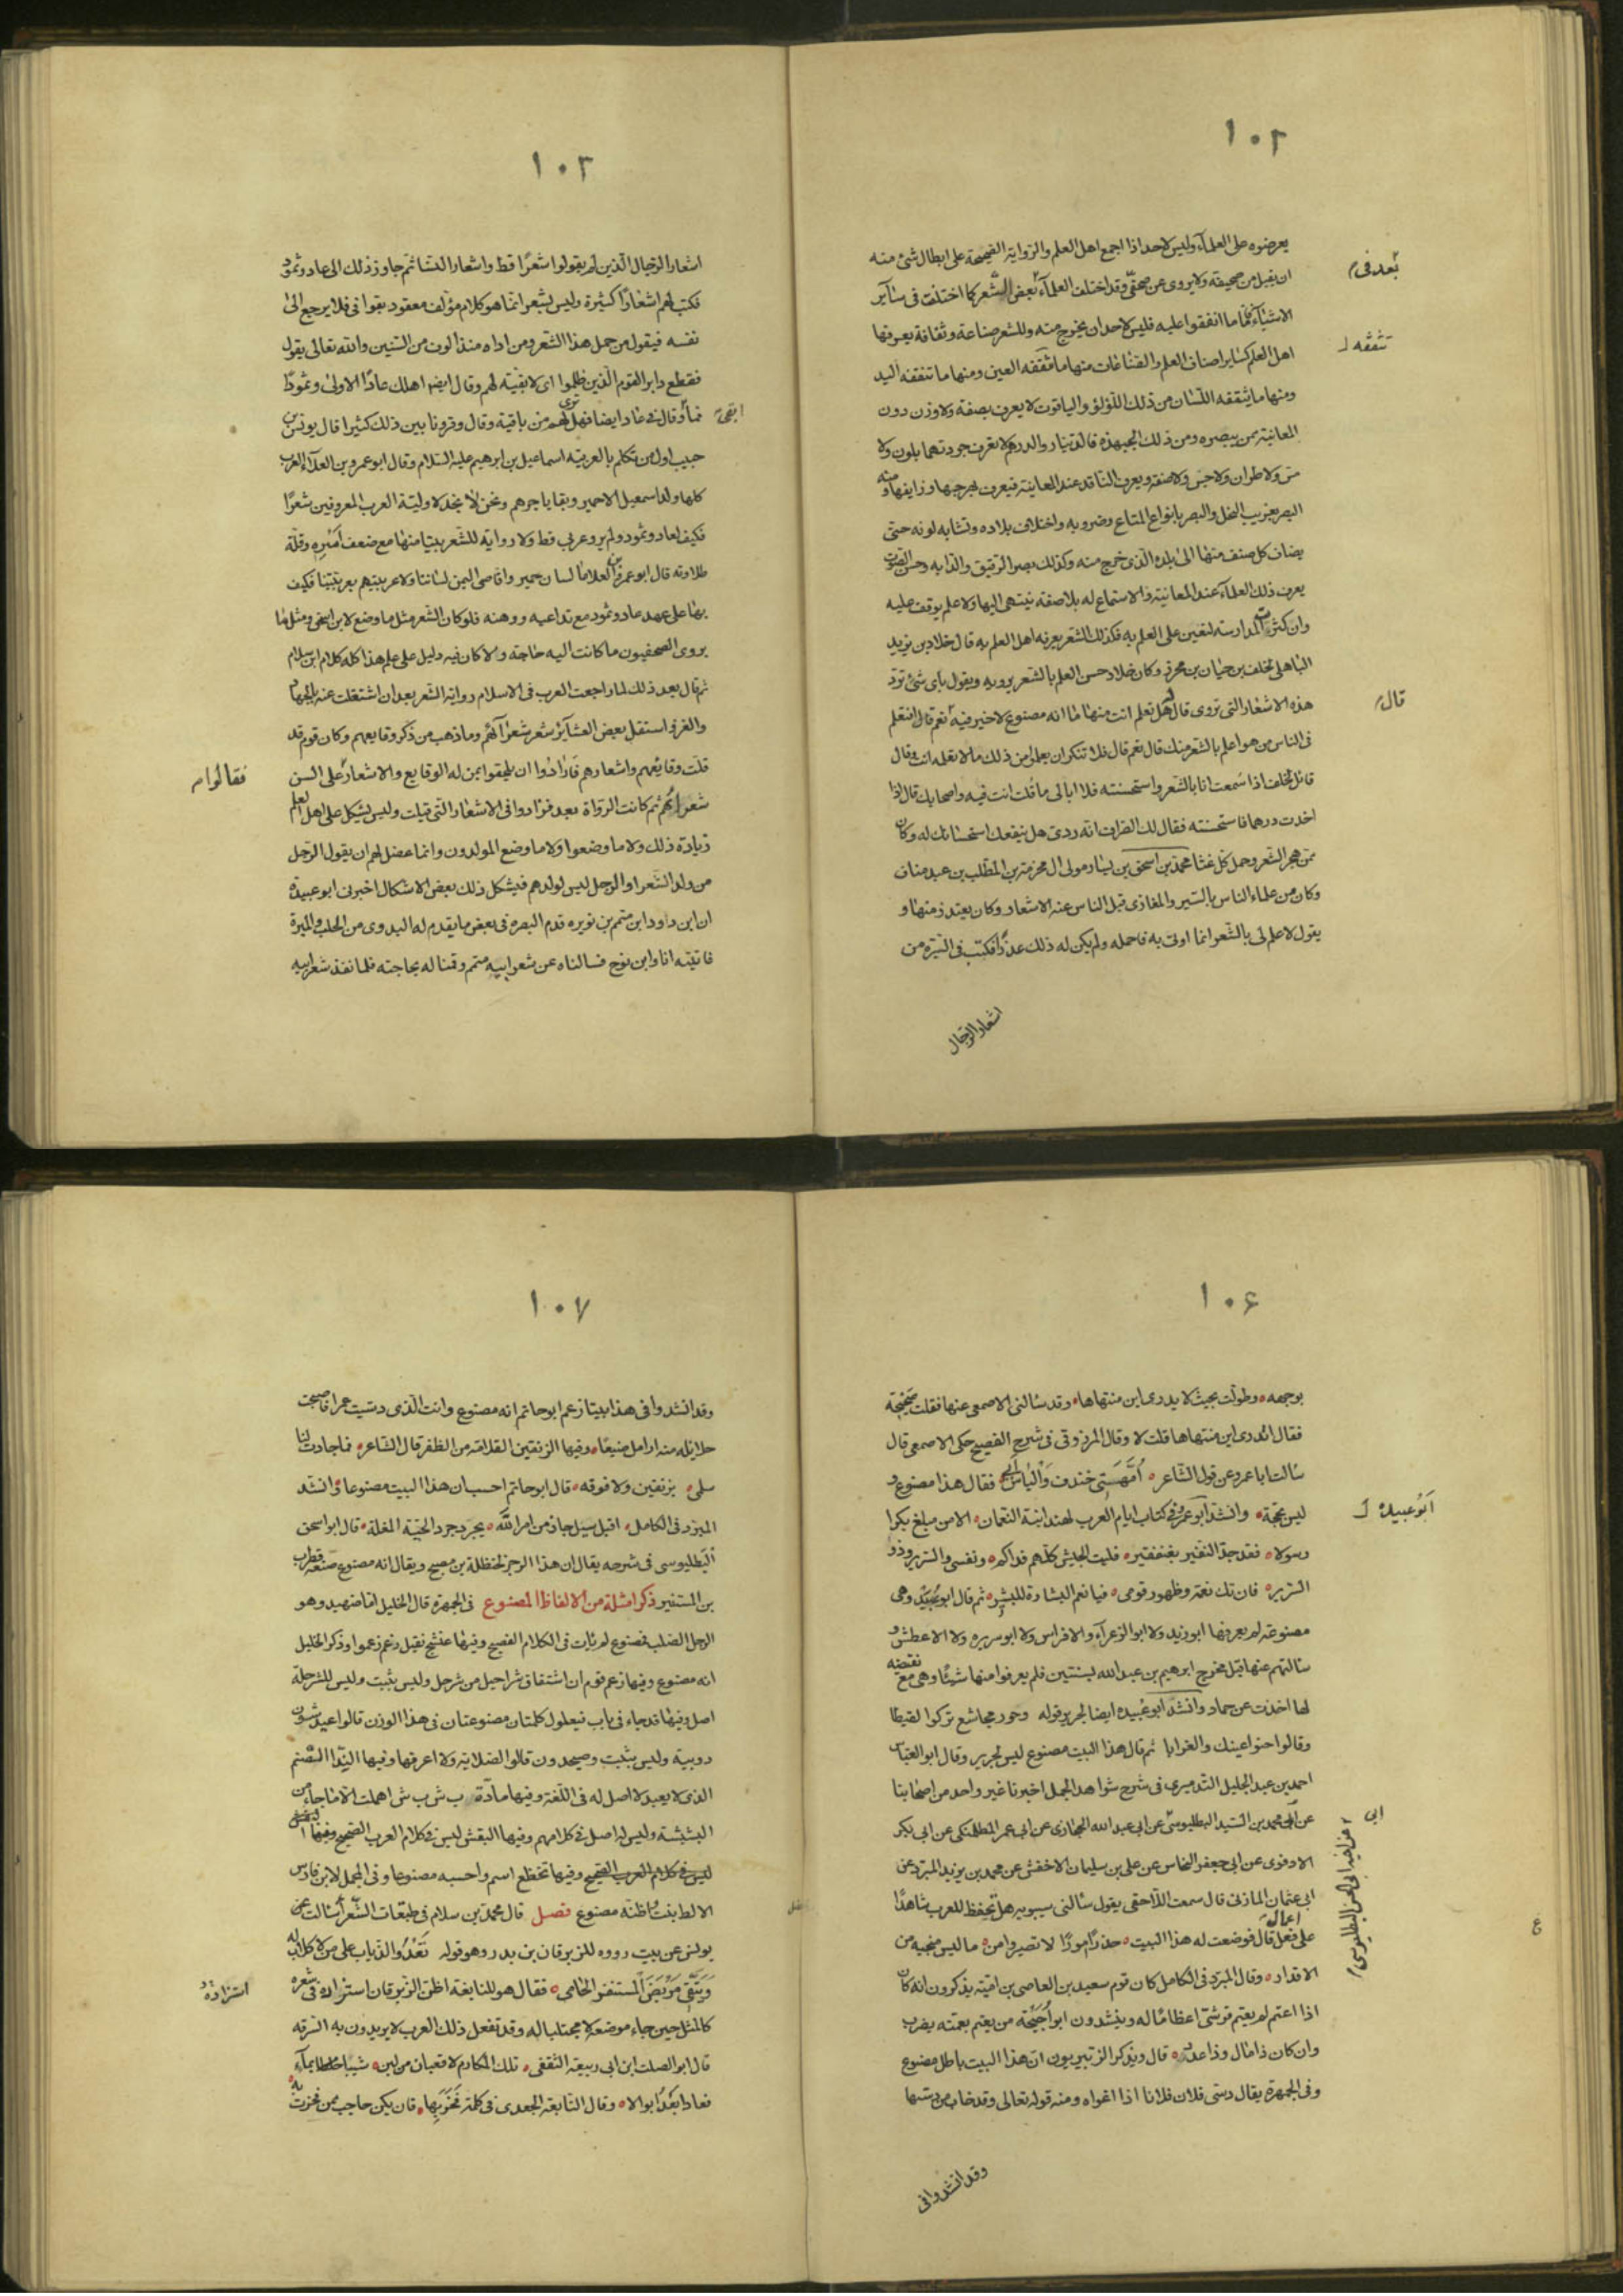 ١٠٢
يعرضوه على العلمآء وليس لاحد اذا اجمع اهل العلم والرواية الصحيحة على ابطال شئ منه
ان يقبل من صحيفة ولا يروى عن صحفّى وقد اختلف العلمآء بعض الشعر كما اختلفت فى سائر
بعد فى
الاشيآء فامّا ما اتفقوا عليه فليس لاحد ان يخرج منه وللشعر صناعة وثقافة يعرفها
اهل العلم كسائر اصناف العلم والصناعات منها ما تثقفه العين ومنها ما تثقفه اليد
تثقفه
ومنها ما يثقفه اللّسان من ذلك اللؤلؤ والياقوت لا يعرف بصفة ولا وزن دون
المعاينة ممن يبصره ومن ذلك الجهبذة فالدينار والدرهم لا تعرف جودتهما بلون ولا
مس ولا طراز ولا حس ولا صفة ويعرف الناقد عند المعاينة فيعرف بهرجها وزايفها ومنه
البصر بغريب النخل والبصر بانواع المتاع وضروبه واختلاف بلاده وتشابه لونه حتى
يضاف كل صنف منها الى بلده الذى خرج منه وكذلك بصر الرقيق والدابه وحسن الصوت
يعرف ذلك العلمآء عند المعاينة والاستماع له بلا صفة ينتهى اليها ولا علم يوقف عليه
وان كثرت المدارسة لتعين على العلم به فكذلك الشعر يعرفه اهل العلم به قال خلاد بن يزيد
الباهلى لخلف بن حيان بن محرز وكان خلاد حسن العلم بالشعر يرويه ويقول باى شئ ترد
هذه الاشعار التى تروى قال له هل تعلم انت منها ما انه مصنوع لا خير فيه نعم قال افتعلم
قال
فى الناس من هو اعلم بالشعر منك قال نعم قال فلا تنكر ان يعلموا من ذلك ما لا تعلمه انت وقال
قائل لخلف اذا سمعت انا بالشعر واستحسنته فلا ابالى ما قلت انت فيه واصحابك قال اذا
اخذت درهما فاستحسنته فقال لك الصراف انه ردى هل ينفعك استحسانك له وكان
ممن هجن الشعر وحمل كل غثا محمد بن اسحق بن يسار مولى ال مخرمة بن المطّلب بن عبد مناف
وكان من علماء الناس بالسير والمغازى قبل الناس عنه الاشعار وكان يعتذر منها و
يقول لا علم لى بالشعر انما اوتى به فاحمله ولم يكن له ذلك عذرًا فكتب فى السّيرة من
اشعار الرجال
١٠٣
اشعار الرجال الّذين لم يقولوا شعرًا قط واشعار النسا ثم جاوز ذلك الى عاد وثمود
فكتب لهم اشعارًا كثيرة وليس بشعر انما هو كلام مؤلف معقود بقوافى فلا يرجع الى
نفسه فيقول من حمل هذا الشعر ومن اداه منذ الوف من السّنين والله تعالى يقول
فقطع دابر القوم الّذين ظلموا اى لا بقية لهم وقال ايضا اهلك عادًا الاولى وثمودًا
فما وقال فى عاد ايضا فهل ترى لهم من باقية وقال وقرونا بين ذلك كثيرا قال يونس بن
ابقى
حبيب اول من تكلم بالعربية اسماعيل بن ابرهيم عليه السّلام وقال ابو عمرو بن العلآء العرب
كلها ولد اسمعيل الا حمير وبقايا جرهم ونحن لا نجد لاولية العرب المعروفين شعرًا
فكيف لعاد وثمود ولم يرو عربى قط ولا رواية للشعر بيتا منها مع ضعف اسْرِه وقلّة
طلاوته قال ابو عمرو بن العلا ما لسان حمير واقاصى اليمن لساننا ولا عربيتهم بعربيتنا فكيف
بها على عهد عاد وثمود مع تداعيه ووهنه فلو كان الشعر مثل ما وضع لابن اسحق ومثل ما
يروى الصحفيون ما كانت اليه حاجة ولا كان فيه دليل على علم هذا كله كلام ابن سلام
ثم قال بعد ذلك لما راجعت العرب فى الاسلام رواية الشعر بعد ان اشتغلت عنه بالجهاد
والغزو استقل بعض العشآئر شعر شعرآئهم وما ذهب من ذكر وقايعهم وكان قوم قد
قلت وقائعهم واشعارهم فارادوا ان يلحقوا بمن له الوقايع والاشعار على السن
فقالوا
شعرائهم ثم كانت الرواة بعد فزادوا فى الاشعار التى قيلت وليس يشكل على اهل العلم
زيادة ذلك ولا ما وضعوا ولا ما وضع المولدون وانما عضل لهم ان يقول الرجل
من ولد الشعرا والرجل ليس لولدهم فيشكل ذلك بعض الاشكال اخبرنى ابو عبيدة
ان ابن داود ابن متمم بن نويره قدم البصرة فى بعض ما يقدم له البدوى من الجلب والميرة
فاتيته انا وابن نوح فسالناه عن شعر ابيه متمم وقمنا له بحاجته فلما نفد شعر ابيه
١٠٦
بوجهه وطولت بحيث لا يدرى اين منتهاها وقد سالنى الاصمعى عنها فقلت صحيحة
فقال اتدرى اين منتهاها قلت لا وقال المرزوقى فى شرح الفصيح حكى الاصمعى قال
سالت ابا عمرو عن قول الشاعر اُمَّهَتى خندف وَاْلياسُ اَبى فقال هذا مصنوع و
ليس بحجة وانشد ابو عمرو فى كتاب ايام العرب لهند ابنة النعمان الا من مبلغ بكرا
ابُو عبيده
رسولا فقد جدّ النفير بعنفقير فليت الجيش كلّهم فداكم ونفسى والسرير وذو
السرير فان تك نعمة وظهور قومى فيا نعم البشارة للبشير ثم قال ابو عبيدة وهى
مصنوعة لم يعرفها ابو زيد ولا ابو الزعرآء ولا ابو فراس ولا ابو سريره ولا الاعطش و
سالتهم عنها قبل مخرج ابرهيم بن عبد الله بسنتين فلم يعرفوا منها شيئًا وهى مع نقضه
لها اخذت عن حماد وانشد ابو عبيده ايضا لجرير قوله وخور مجاشع تركوا لقيطا
وقالوا حنو عينك والغرابا ثم قال هذا البيت مصنوع ليس لجرير وقال ابو العباس
احمد بن عبد الجليل التدميرى فى شرح شواهد الجمل اخبرنا غير واحد من اصحابنا
عن ابى محمد بن السّيد البطليوسى عن ابى عبد الله الحجازى عن ابى عمر الطلمنكى عن ابى بكر
ابى
عن اخيه ابى الحسن البطليوسى
الادفوى عن ابى جعفر النحاس عن على بن سليمان الاخفش عن محمد بن يزيد المبرد عن
ابى عثمان المازنى قال سمعت اللّاحقى يقول سالنى سيبويه هل تحفظ للعرب شاهدًا
على اعمال فعل قال فوضعت له هذا البيت حذرٌ امورًا لا تضير وامن ما ليس منجيه من
الاقدار وقال المبرّد فى الكامل كان قوم سعيد بن العاصى بن امية يذكرون انه كان
اذا اعتم لم يعتم قرشى اعظامًا له وينشدون ابو اُحَيْحَة من يعتم بعمته يضرب
وان كان ذا مال وذا عدد قال ويذكر الزبيريون انّ هذا البيت باطل مصنوع
وفى الجمهرة يقال دسّى فلان فلانا اذا اغواه ومنه قوله تعالى وقد خاب من دسّها
وقد انشدوا فى
١٠٧
وقد انشدوا فى هذا بيتا زعم ابو حاتم انه مصنوع وانت الّذى دسّيت عمرا فاصبحت
حلايله منه ارامل ضيعًا وفيها الزنقير القلامة من الظفر قال الشاعر فما جادت لنا
سلمى بزنقير ولا فوفه قال ابو حاتم احسب ان هذا البيت مصنوعا وانشد
المبرّد فى الكامل اقبل سيل جاء من امر اللّه يحرد حرد الحيّة المغلة قال ابو اسحق
البطليوسى فى شرحه يقال ان هذا الرجز لحنظلة بن مصبح ويقال انه مصنوع صنعه قطرب
بن المستنير ذكر امثلة من الالفاظ المصنوع فى الجمهرة قال الخليل اما ضهيد وهو
الرجل الصلب فمصنوع لم يأت فى الكلام الفصيح وفيها عفشج ثقيل وخم زعموا وذكر الخليل
انه مصنوع وفيها زعم قوم ان اشتقاق شراحيل من شرحل وليس بثبت وليس للشرحلة
اصل وفيها قد جاء فى باب فيعلول كلمتان مصنوعتان فى هذا الوزن قالوا عيدشون
دويبة وليس بثبت وصيخدون قالوا الصلابة ولا اعرفها وفيها البدّ الصّنم
الذى لا يعبد لا اصل له فى اللّغة وفيها مادّة ب ش ب ش اهملت الا ما جاء من
البشبشة وليس له اصل فى كلامهم وفيها البقش ليس فى كلام العرب الصحيح وفيها
وفيها تخطع اسم واحسبه مصنوعا وفى المجمل لابن فارس
الالط نبت واظنّه مصنوع فصل قال محمد بن سلام فى طبقات الشعرآ سالت عن
يونس عن بيت رووه للزبرقان بن بدر وهو قوله تَعْدُو الذّياب على من لا كلاب له
وَتَتَّقى مَرْبَضَ المستنفر الحامى فقال هو للنابغة اظن الزبرقان استزاده فى شعره
استزادهُ
كالمثل حين جاء موضعه لا مجتلبا له وقد تفعل ذلك العرب لا يريدون به السّرقه
قال ابو الصلت ابن ابى ربيعة الثقفى تلك المكارم لا قعبان من لبن شيبا بمآء
فعادا بَعْدُ ابوالا وقال النّابغة الجعدى فى كلمة فَخَرَ بِهَا فان يكن حاجب ممن فخرت به